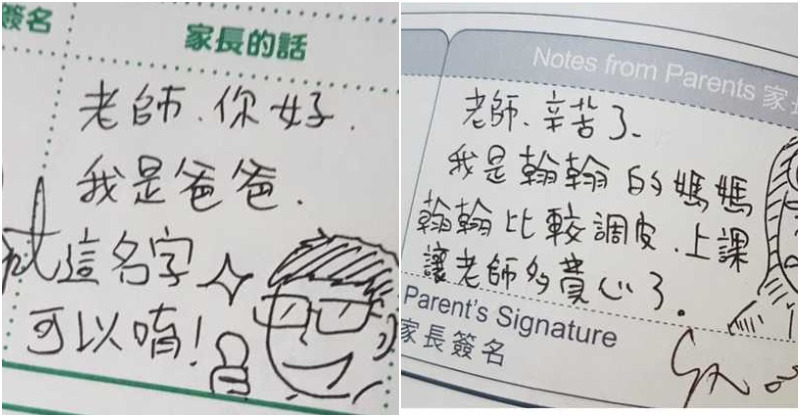 簽名
家長的話
老師、你好.
我是爸爸.
這名字
可以唷!
Notes from Parents 家長
老師、辛苦了、
我是翰翰的媽媽
翰翰比較調皮、上課
讓老師多費心了。
Parent's Signature
家長簽名